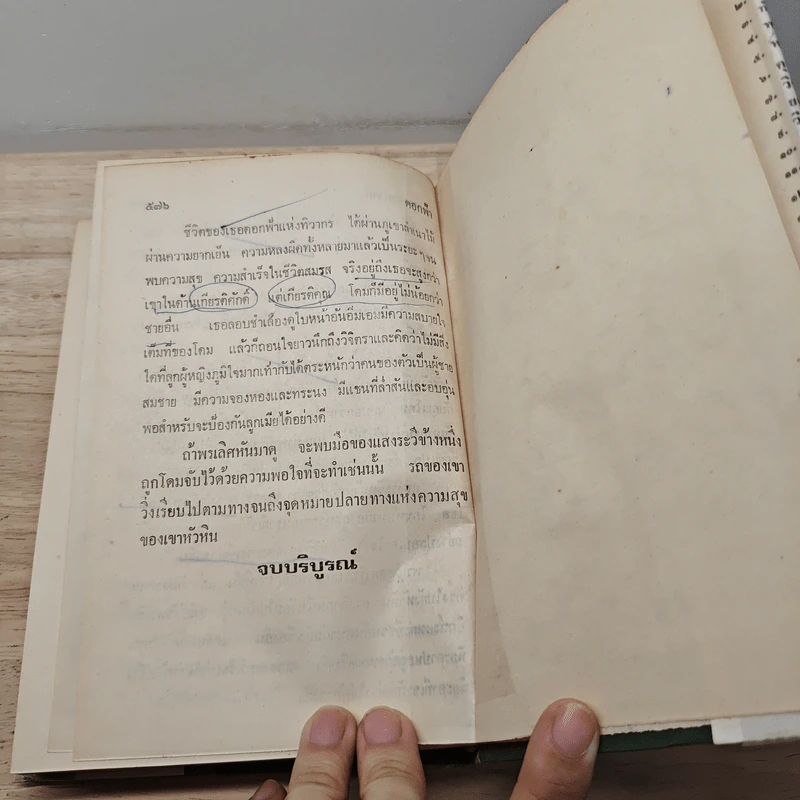 ๕๗๖
ดอกฟ้า
ชีวิตของเธอดอกฟ้าแห่งทิวากร ได้ผ่านภูเขาลำเนาไม้
ผ่านความยากเย็น ความหลงผิดทั้งหลายมาแล้วเป็นระยะ ๆ จน
พบความสุข ความสำเร็จในชีวิตสมรส จริงอยู่ถึงเธอจะสูงกว่า
เขาในด้านเกียรติศักดิ์ แต่เกียรติคุณ โดมก็มีอยู่ไม่น้อยกว่า
ชายอื่น เธอลอบชำเลืองดูใบหน้าอันอิ่มเอมมีความสบายใจ
เต็มที่ของโดม แล้วก็ถอนใจยาวนึกถึงวิจิตราและคิดว่าไม่มีสิ่ง
ใดที่ลูกผู้หญิงภูมิใจมากเท่ากับได้ตระหนักว่าคนของตัวเป็นผู้ชาย
สมชาย มีความจองหองและทระนง มีแขนที่ล่ำสันและอบอุ่น
พอสำหรับจะป้องกันลูกเมียได้อย่างดี
ถ้าพรเลิศหันมาดู จะพบมือของแสงระวีข้างหนึ่ง
ถูกโดมจับไว้ด้วยความพอใจที่จะทำเช่นนั้น รถของเขา
วิ่งเรียบไปตามทางจนถึงจุดหมายปลายทางแห่งความสุข
ของเขาหัวหิน
จบบริบูรณ์
๒.
๓.
๔.
๕.
๖.
๗.
๘.
๙.
๑๐.
๑๑.